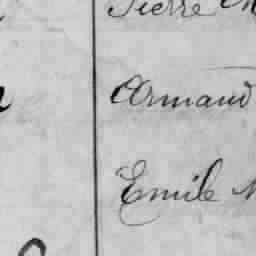 Pierre
Armand
Emile